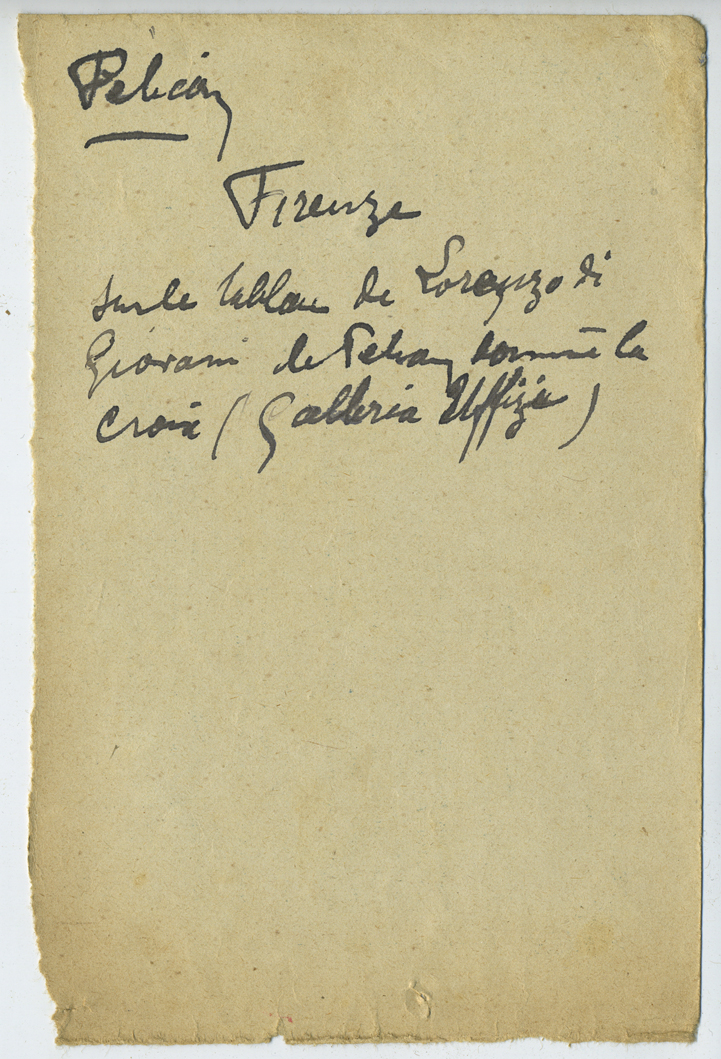 Pelican
Firenze
sur le tableau de Lorenzo di
Giovani le Pelican domine la
croix (Galleria Uffizi)